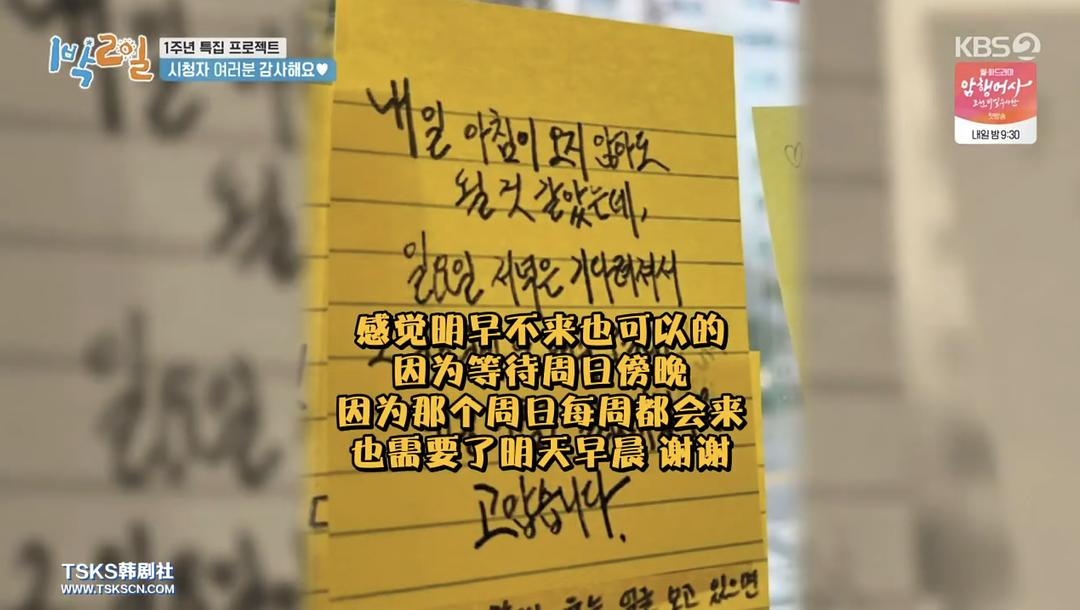 1박2일
1주년 특집 프로젝트
시청자 여러분 감사해요♥
KBS2
암행어사
조선비밀수사단
첫방송
내일 밤 9:30
내일 아침이 오지 않아도
될 것 같았는데,
일요일 저녁은 기다려져서
感觉明早不来也可以的
因为等待周日傍晚
因为那个周日每周都会来
也需要了明天早晨 谢谢
고맙습니다.
보고 있으면
TSKS韩剧社
WWW.TSKSCN.COM